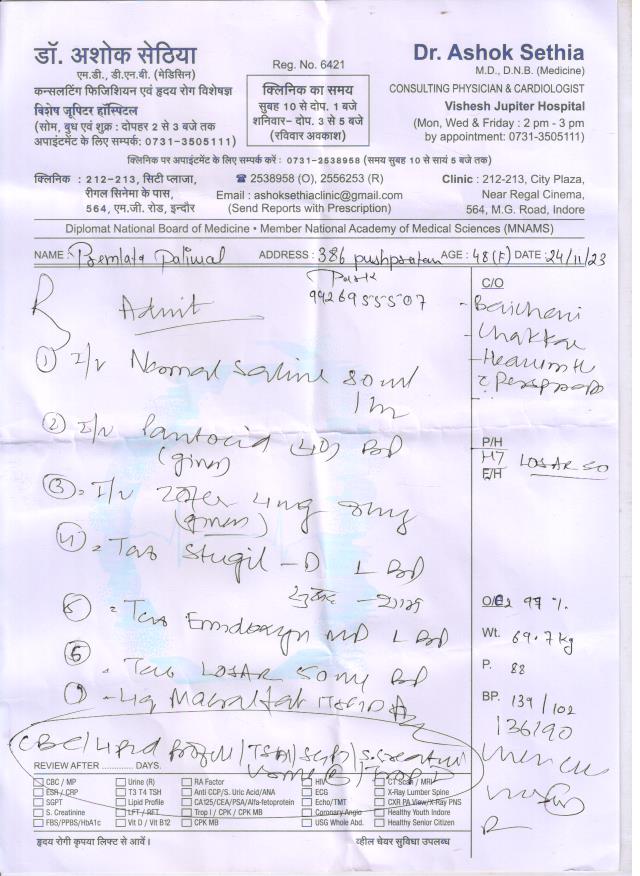 डॉ. अशोक सेठिया
एम.डी., डी.एन.बी. (मेडिसिन)
कन्सल्टिंग फिजिशियन एवं हृदय रोग विशेषज्ञ
विशेष जूपिटर हॉस्पिटल
(सोम, बुध एवं शुक्र : दोपहर 2 से 3 बजे तक
अपाइंटमेंट के लिए सम्पर्क: 0731-3505111)
Reg. No. 6421
क्लिनिक का समय
सुबह 10 से दोप. 1 बजे
शनिवार- दोप. 3 से 5 बजे
(रविवार अवकाश)
Dr. Ashok Sethia
M.D., D.N.B. (Medicine)
CONSULTING PHYSICIAN & CARDIOLOGIST
Vishesh Jupiter Hospital
(Mon, Wed & Friday : 2 pm - 3 pm
by appointment: 0731-3505111)
क्लिनिक पर अपाइंटमेंट के लिए सम्पर्क करें : 0731-2538958 (समय सुबह 10 से सायं 5 बजे तक)
क्लिनिक : 212-213, सिटी प्लाजा,
रीगल सिनेमा के पास,
564, एम.जी. रोड, इन्दौर
☎ 2538958 (O), 2556253 (R)
Email : ashoksethiaclinic@gmail.com
(Send Reports with Prescription)
Clinic : 212-213, City Plaza,
Near Regal Cinema,
564, M.G. Road, Indore
Diplomat National Board of Medicine • Member National Academy of Medical Sciences (MNAMS)
NAME : Premlata Paliwal ADDRESS : 386 AGE : 48 (F) DATE : 24/11/23
R Admit
① I/V Normal Saline 80 ml
1 hr
② I/V Pantocid (40) BD
(given)
③ I/V 4 mg
(given)
4 Tab Stugil - D BD
5 Tab BD
6 Tab LOSAR 50 mg BD
C/O
- Bechani
- Chakkar
P/H
LOSAR 50
F/H
O/E 99 %
Wt. 69.7 kg
P. 88
BP. 139 / 102
136/90
CBC / Lipid Profile / TSH / SGPT / S. Creatinine
REVIEW AFTER ............ DAYS.
CBC / MP
ESR / CRP
SGPT
S. Creatinine
FBS/PPBS/HbA1c
Urine (R)
T3 T4 TSH
Lipid Profile
LFT / RFT
Vit D / Vit B12
RA Factor
Anti CCP/S. Uric Acid/ANA
CA125/CEA/PSA/Alfa-fetoprotein
Trop I / CPK / CPK MB
CPK MB
HIV
ECG
Echo/TMT
Coronary Angio
USG Whole Abd.
CT Scan / MRI
X-Ray Lumber Spine
CXR PA View/X-Ray PNS
Healthy Youth Indore
Healthy Senior Citizen
हृदय रोगी कृपया लिफ्ट से आवें। व्हील चेयर सुविधा उपलब्ध